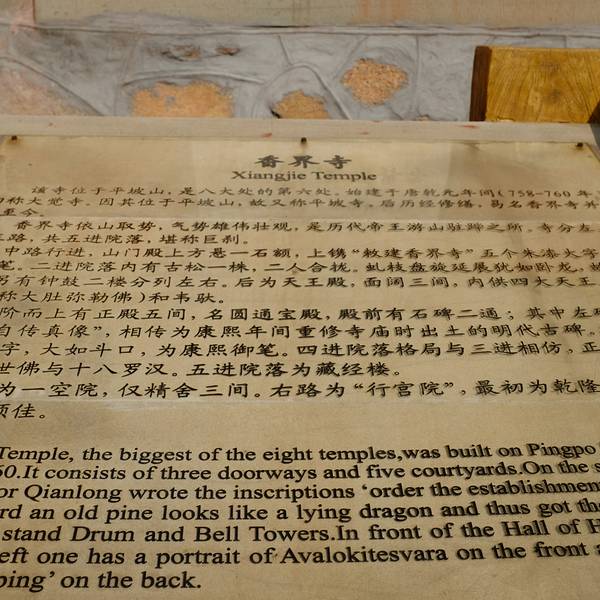 香界寺
Xiangjie Temple
该寺位于平坡山,是八大处的第六处。始建于唐乾元年间(758-760年
称大觉寺。因其位于平坡山,故又称平坡寺。后历经修缮,易名香界寺并
至今。
香界寺依山取势,气势雄伟壮观,是历代帝王游山驻跸之所。寺分左
路,共五进院落,堪称巨刹。
中路行进,山门殿上方悬一石额,上镌“敕建香界寺”五个朱漆大字
笔。二进院落内有古松一株,二人合拢。虬枝盘旋延展犹如卧龙,故
有钟鼓二楼分列左右。后为天王殿,面阔三间,内供四大天王
称大肚弥勒佛)和韦驮。
阶而上有正殿五间,名圆通宝殿,殿前有石碑二通;其中左碑
自传真像”,相传为康熙年间重修寺庙时出土的明代古碑。
字,大如斗口,为康熙御笔。四进院落格局与三进相仿,正
世佛与十八罗汉。五进院落为藏经楼。
为一空院,仅精舍三间。右路为“行宫院”,最初为乾隆
颇佳。
Temple, the biggest of the eight temples,was built on Pingpo
60.It consists of three doorways and five courtyards.On the
or Qianlong wrote the inscriptions ‘order the establishmen
rd an old pine looks like a lying dragon and thus got the
stand Drum and Bell Towers.In front of the Hall of H
eft one has a portrait of Avalokitesvara on the front a
ping’ on the back.